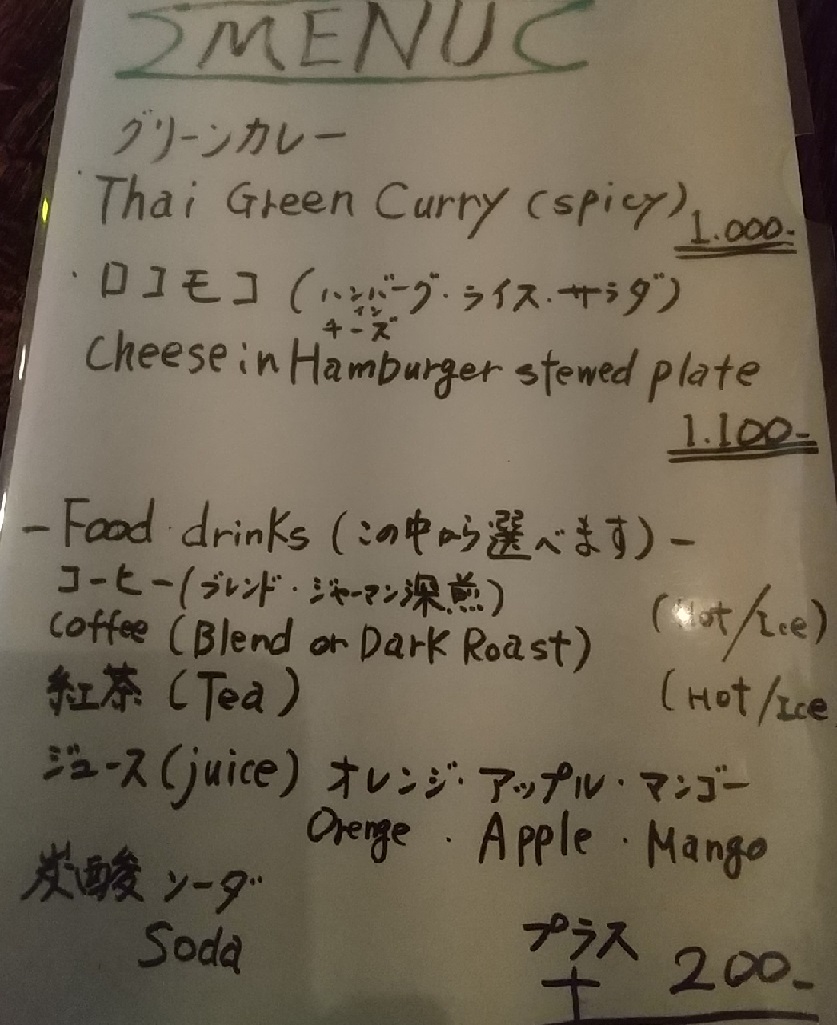 MENU
グリーンカレー
・Thai Green Curry (spicy) 1.000-
・ロコモコ (ハンバーグ・ライス・サラダ)
イン
チーズ
Cheese in Hamburger stewed plate
1.100-
- Food drinks (この中から選べます) -
コーヒー(ブレンド・ジャーマン深煎)
Coffee (Blend or Dark Roast) (Hot/Ice)
紅茶 (Tea) (Hot/Ice
ジュース(juice) オレンジ・アップル・マンゴー
Orenge . Apple . Mango
炭酸 ソーダ
Soda
プラス
+ 200-